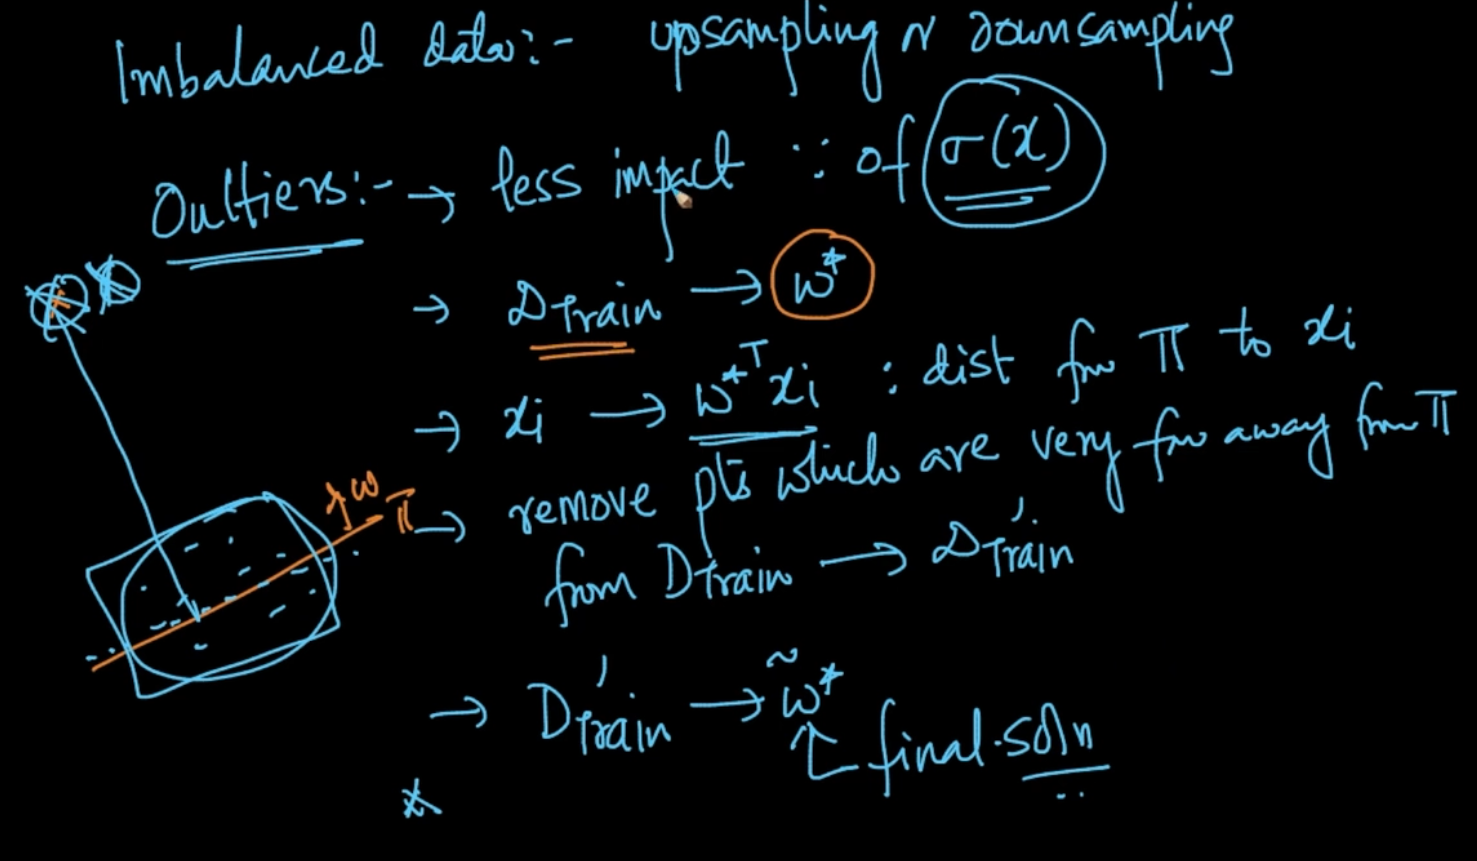 Imbalanced data:- upsampling or downsampling
Outliers:- → less impact ∵ of σ(x)
→ Dtrain → w*
→ xi → w*ᵀxi : dist from π to xi
→ remove pts which are very far away from π
from Dtrain → D'train
→ D'train → w̃*
final soln
w
π